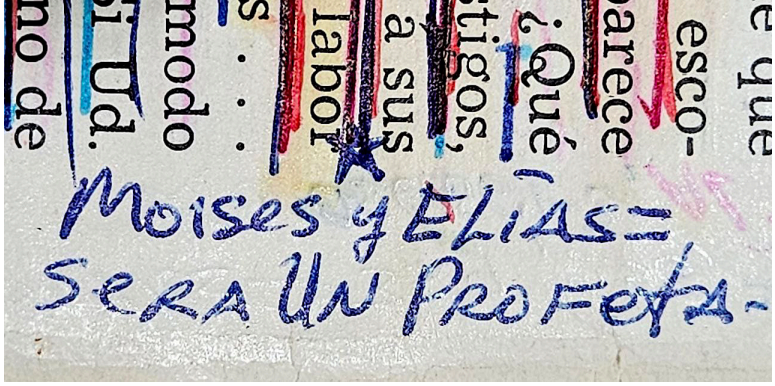 e que
esco-
arece
¿Qué
stigos,
a sus
labor
s . . .
modo
Si Ud.
no de
Moises y ELÍAS=
SERA UN PROFETA-